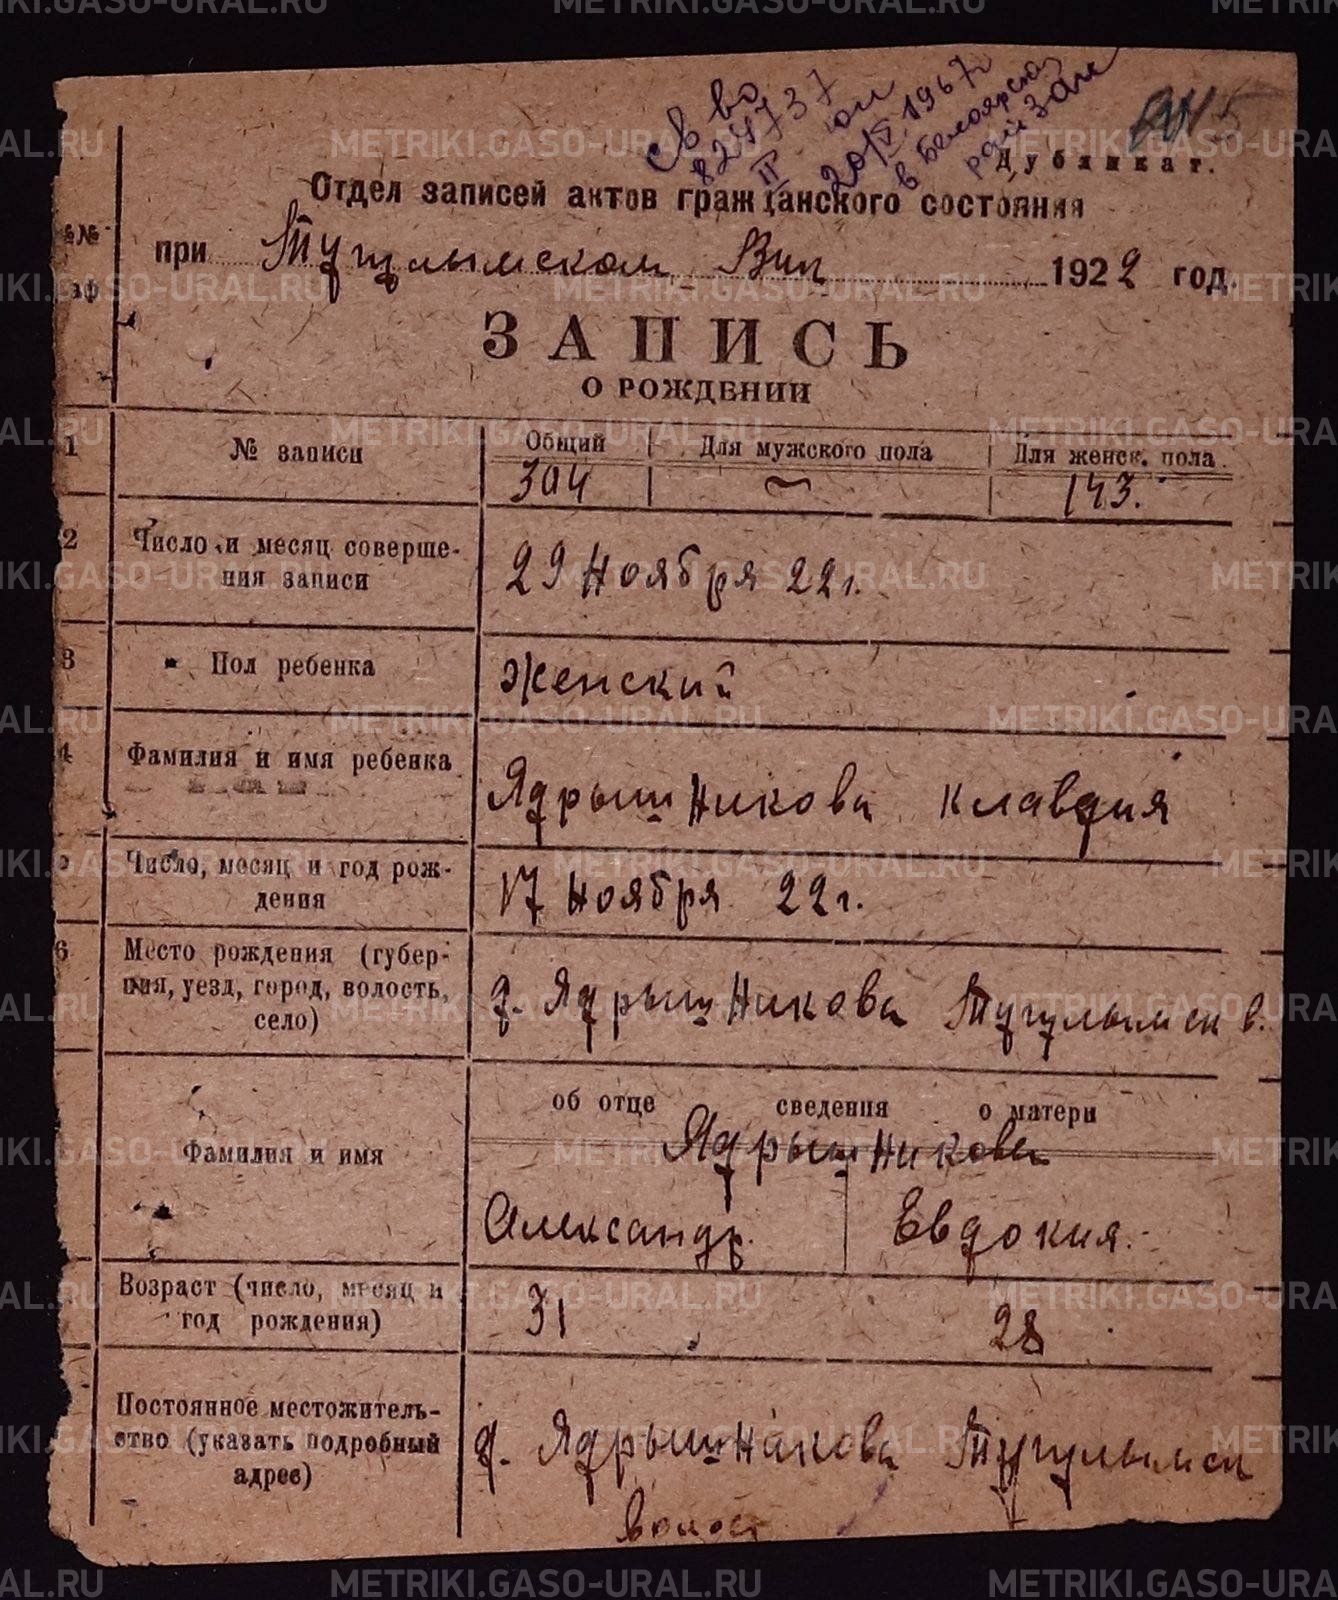 Св во
824737
II юл
20/IV 1967г
в Белоярском
рай ЗАГС
Дубликат.
Отдел записей актов гражданского состояния
№№
при Тугулымском Вик 1922 год.
аф
ЗАПИСЬ
О РОЖДЕНИИ
1 № записи Общий Для мужского пола Для женск. пола
304 — 143.
2 Число и месяц соверше-
ния записи
29 Ноября 22г.
3 Пол ребенка Женский
4 Фамилия и имя ребенка
Ядрышникова Клавдия
Число, месяц и год рож-
дения
17 Ноября 22г.
6 Место рождения (губер-
ния, уезд, город, волость,
село)
д. Ядрышникова Тугулымск в.
об отце сведения о матери
Фамилия и имя
Ядрышникова
Александр. Евдокия.
Возраст (число, месяц и
год рождения)
31 28
Постоянное местожитель-
ство (указать подробный
адрес)
д. Ядрышникова Тугулымск
волост
METRIKI.GASO-URAL.RU